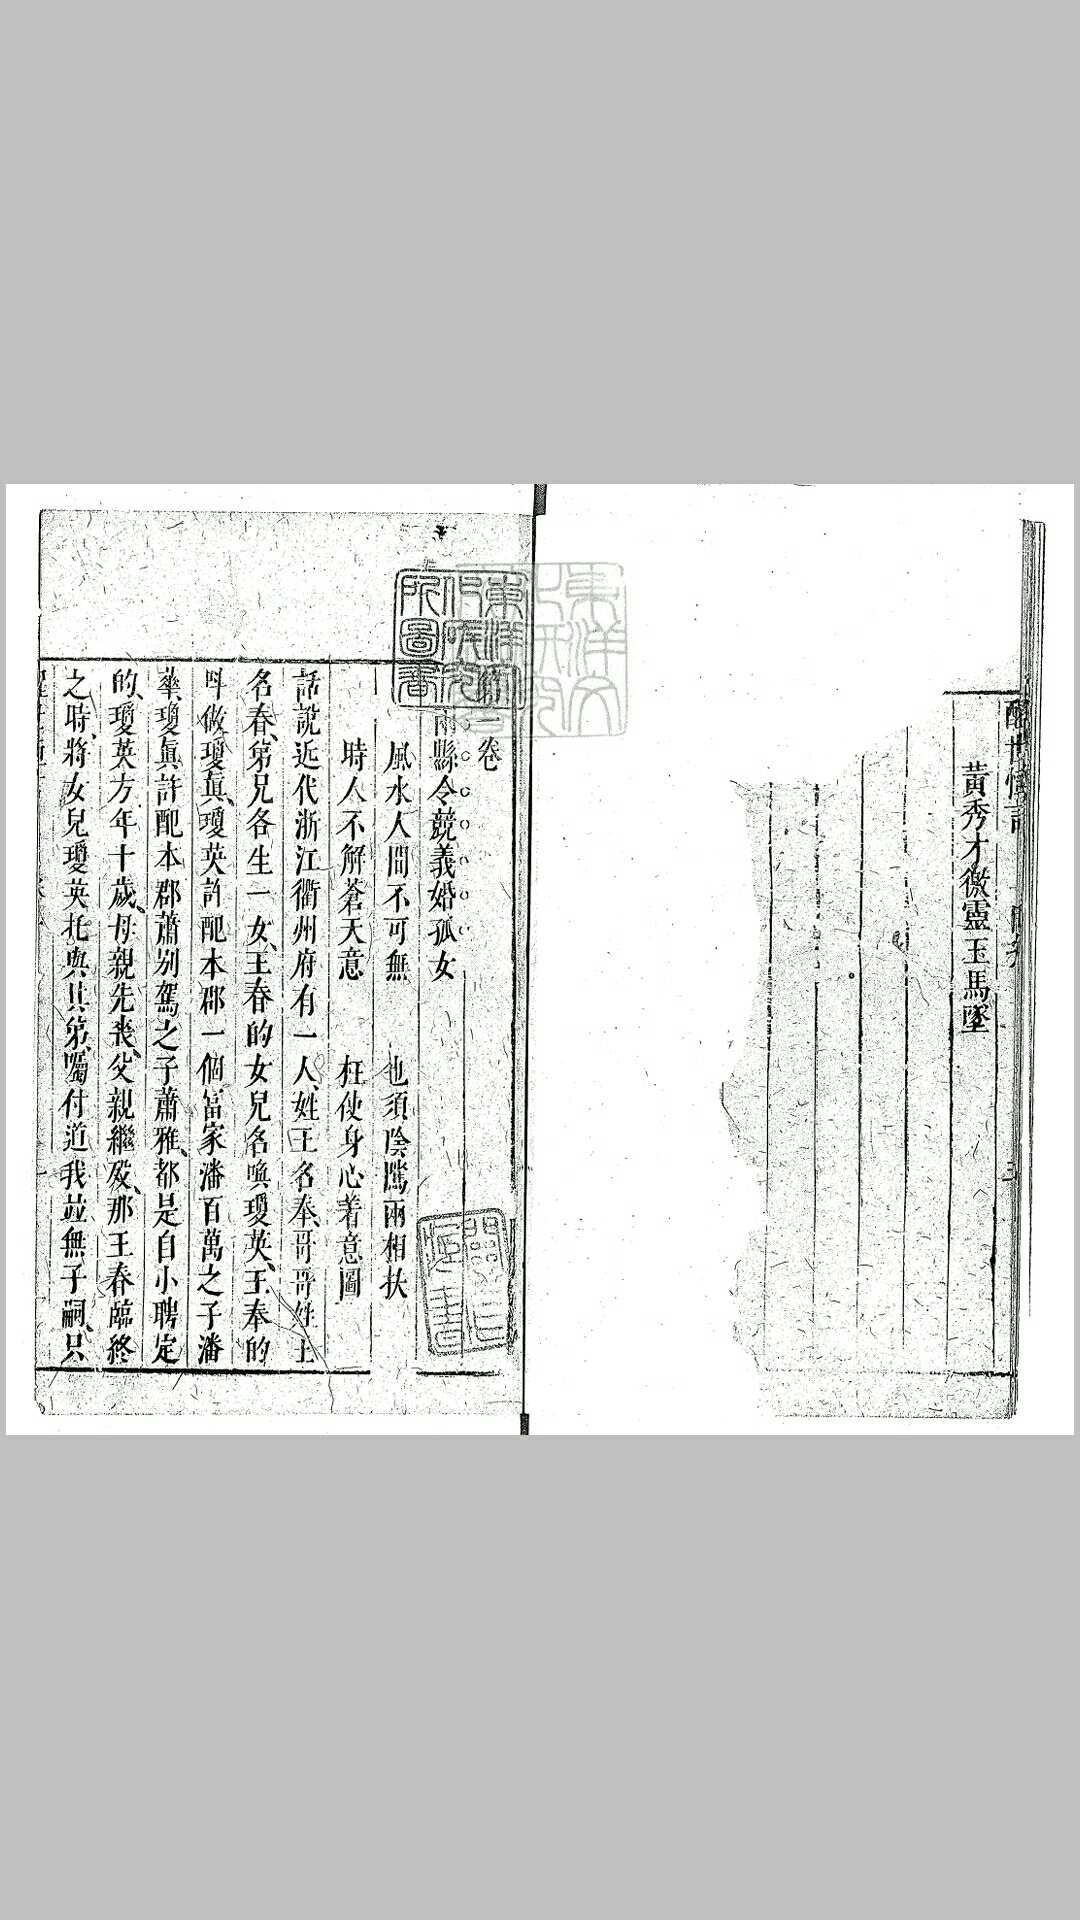 黃秀才徼靈玉馬墜
卷
兩縣令競義婚孤女
風水人間不可無 也須陰隲兩相扶
時人不解蒼天意 枉使身心着意圖
話說近代浙江衢州府有一人、姓王名奉、哥哥姓王
名春、弟兄各生一女、王春的女兒名喚瓊英、王奉的
叫做瓊真、瓊英許配本郡一個富家潘百萬之子潘
華、瓊真許配本郡蕭別駕之子蕭雅、都是自小聘定
的、瓊英方年十歲、母親先喪、父親繼歿、那王春臨終
之時、將女兒瓊英托與其弟、囑付道我並無子嗣、只
東洋文化研究所圖書